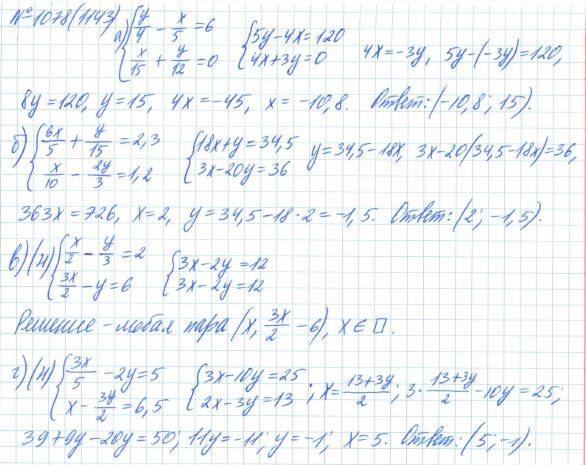 №1078(1143) а) { y/4 − x/5 = 6; x/15 + y/12 = 0 { 5y−4x=120; 4x+3y=0 4x=−3y, 5y−(−3y)=120,
8y=120, y=15, 4x=−45, x=−10,8. Ответ: (−10,8; 15).
б) { 6x/5 + y/15 = 2,3; x/10 − 2y/3 = 1,2 { 18x+y=34,5; 3x−20y=36 y=34,5−18x, 3x−20(34,5−18x)=36,
363x=726, x=2, y=34,5−18·2=−1,5. Ответ: (2; −1,5).
в) (н) { x/2 − y/3 = 2; 3x/2 − y = 6 { 3x−2y=12; 3x−2y=12
Решение – любая пара (x, 3x/2 −6), x∈□.
г) (н) { 3x/5 − 2y = 5; x − 3y/2 = 6,5 { 3x−10y=25; 2x−3y=13 ; x= 13+3y/2 ; 3· 13+3y/2 −10y=25;
39+9y−20y=50; 11y=−11; y=−1; x=5. Ответ: (5; −1).